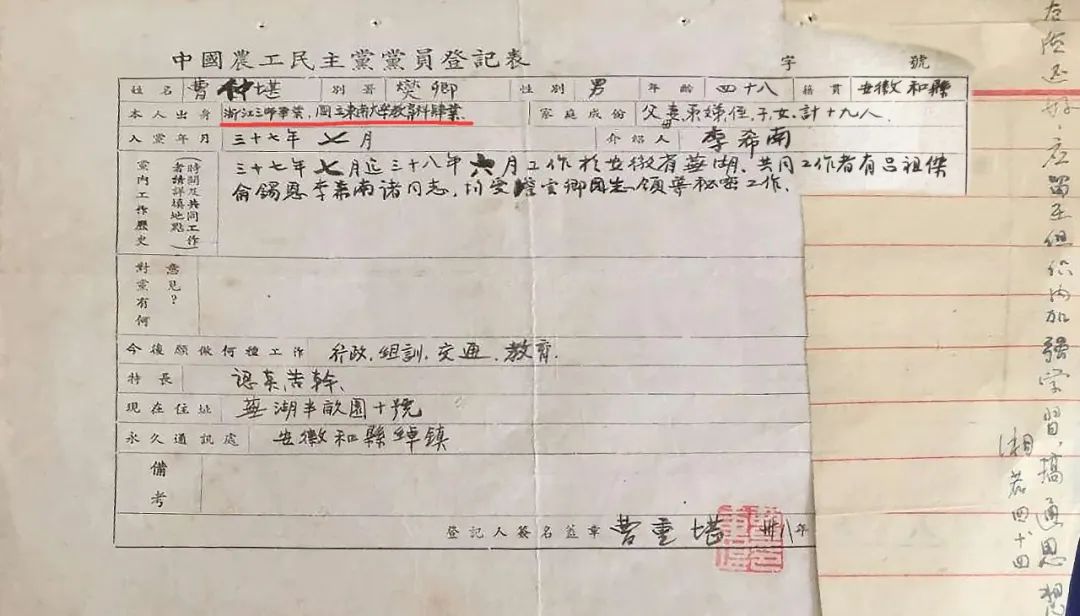 中國農工民主黨黨員登記表
字 號
姓名 曹仲堪 別署 爕卿 性別 男 年齡 四十八 籍貫 安徽和縣
本人出身 浙江三師畢業、國立東南大學教育科肄業、 家庭成份 父妻弟娣侄子女、計十九人
入黨年月 三十七年七月 介紹人 李希南
黨內工作歷史（時間及共同工作者請詳填地點） 三十七年七月迄三十八年六月工作於安徽省蕪湖、共同工作者有呂祖傑
俞錫恩李希南諸同志、均受 雲卿同志領導秘密工作、
對黨有何意見？
今後願做何種工作 行政、組訓、交通、教育、
特長 認真苦幹、
現在住址 蕪湖半畝園十號
永久通訊處 安徽和縣綽鎮
備考
登記人簽名蓋章 曹重堪 卅八年
危險还好、应
留在组织内加强学習、搞通思想
湘若四十四